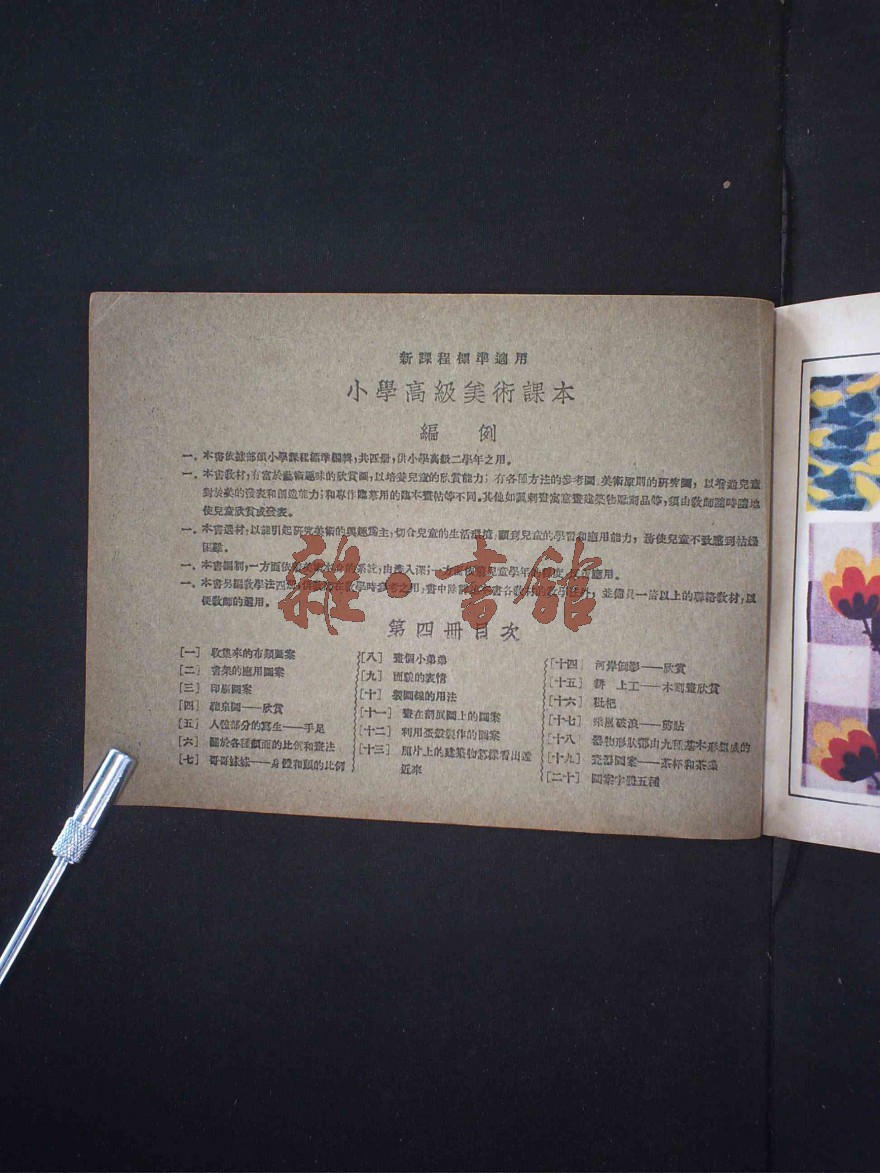 新課程標準適用
小學高級美術課本
編 例
一. 本書依據部頒小學課程標準編輯，共四册，供小學高級二學年之用。
一. 本書教材，有富於藝術趣味的欣賞圖，以培養兒童的欣賞能力；有各種方法的參考圖，美術原則的研究圖，以看過兒童
對於美的發表和創造能力；和專作臨摹用的臨本畫帖等不同。其他如諷刺畫寓意畫建築物雕刻品等，須由教師隨時隨地
使兒童欣賞或發表。
一. 本書選材，以能引起研究美術的興趣爲主，切合兒童的生活環境，顧到兒童的學習和應用能力，務使兒童不致感到枯燥
困難。
一. 本書編制，一方面依 的系統，由淺入深；一方面 兒童學年的 應用。
一. 本書另編教學法四册，供教師在教學時參考之用，書中除 本書各教材的教學 外，並備具一倍以上的聯絡教材，以
便教師的選用。
雜·書館
第四冊目次
[一] 收集來的布類圖案
[二] 書架的應用圖案
[三] 印版圖案
[四] 圖——欣賞
[五] 人體部分的寫生——手足
[六] 關於各種顏面的比例和畫法
[七] 哥哥妹妹——身體和頭的比例
[八] 畫個小弟弟
[九] 面貌的表情
[十] 製圖線的用法
[十一] 畫在圖上的圖案
[十二] 利用蛋殼製作的圖案
[十三] 照片上的建築物怎樣看出遠
近來
[十四] 河岸倒影——欣賞
[十五] 上工——木刻畫欣賞
[十六] 枇杷
[十七] 乘風破浪——剪貼
[十八] 器物形狀都由九種基本形組成的
[十九] 瓷器圖案——茶杯和茶壺
[二十] 圖案字體五種